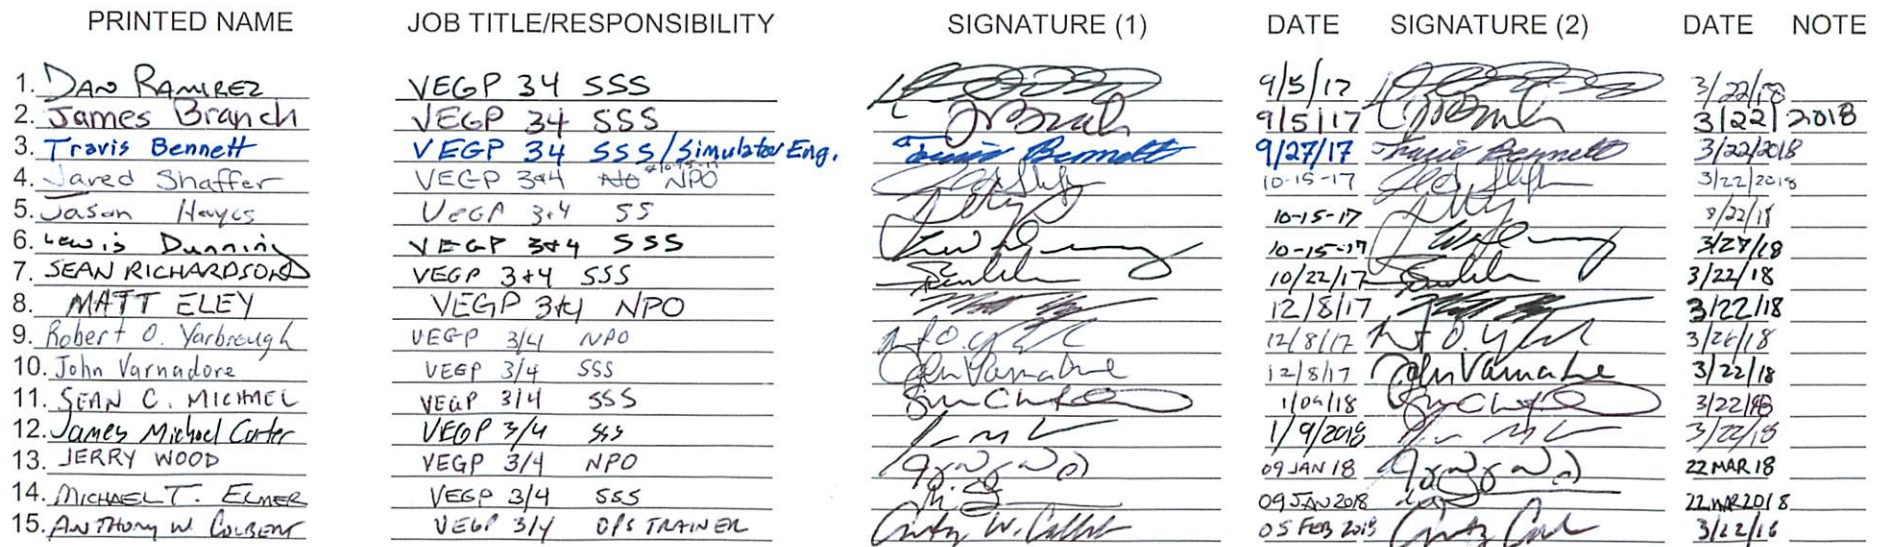 PRINTED NAME JOB TITLE/RESPONSIBILITY SIGNATURE (1) DATE SIGNATURE (2) DATE NOTE
1. DAN RAMIREZ VEGP 34 SSS 9/5/17 3/22/18
2. James Branch VEGP 34 SSS JRBranch 9/5/17 JRBranch 3/22/2018
3. Travis Bennett VEGP 34 SSS/Simulator Eng. Travis Bennett 9/27/17 Travis Bennett 3/22/2018
4. Jared Shaffer VEGP 3+4 NPO 10-15-17 3/22/2018
5. Jason Hayes VEGP 3+4 SS 10-15-17 3/22/18
6. Lewis Dunning VEGP 3+4 SSS 10-15-17 3/27/18
7. SEAN RICHARDSON VEGP 3+4 SSS 10/22/17 3/22/18
8. MATT ELEY VEGP 3+4 NPO 12/8/17 3/22/18
9. Robert O. Yarbrough VEGP 3/4 NPO 12/8/17 3/26/18
10. John Varnadore VEGP 3/4 SSS John Varnadore 12/8/17 John Varnadore 3/22/18
11. SEAN C. MICHAEL VEGP 3/4 SSS 1/09/18 3/22/18
12. James Michael Carter VEGP 3/4 SSS 1/9/2018 3/22/18
13. JERRY WOOD VEGP 3/4 NPO 09 JAN 18 22 MAR 18
14. MICHAEL T. ELMER VEGP 3/4 SSS 09 JAN 2018 22 MAR 2018
15. ANTHONY W COLBERT VEGP 3/4 OPS TRAINER 05 FEB 2018 3/22/18